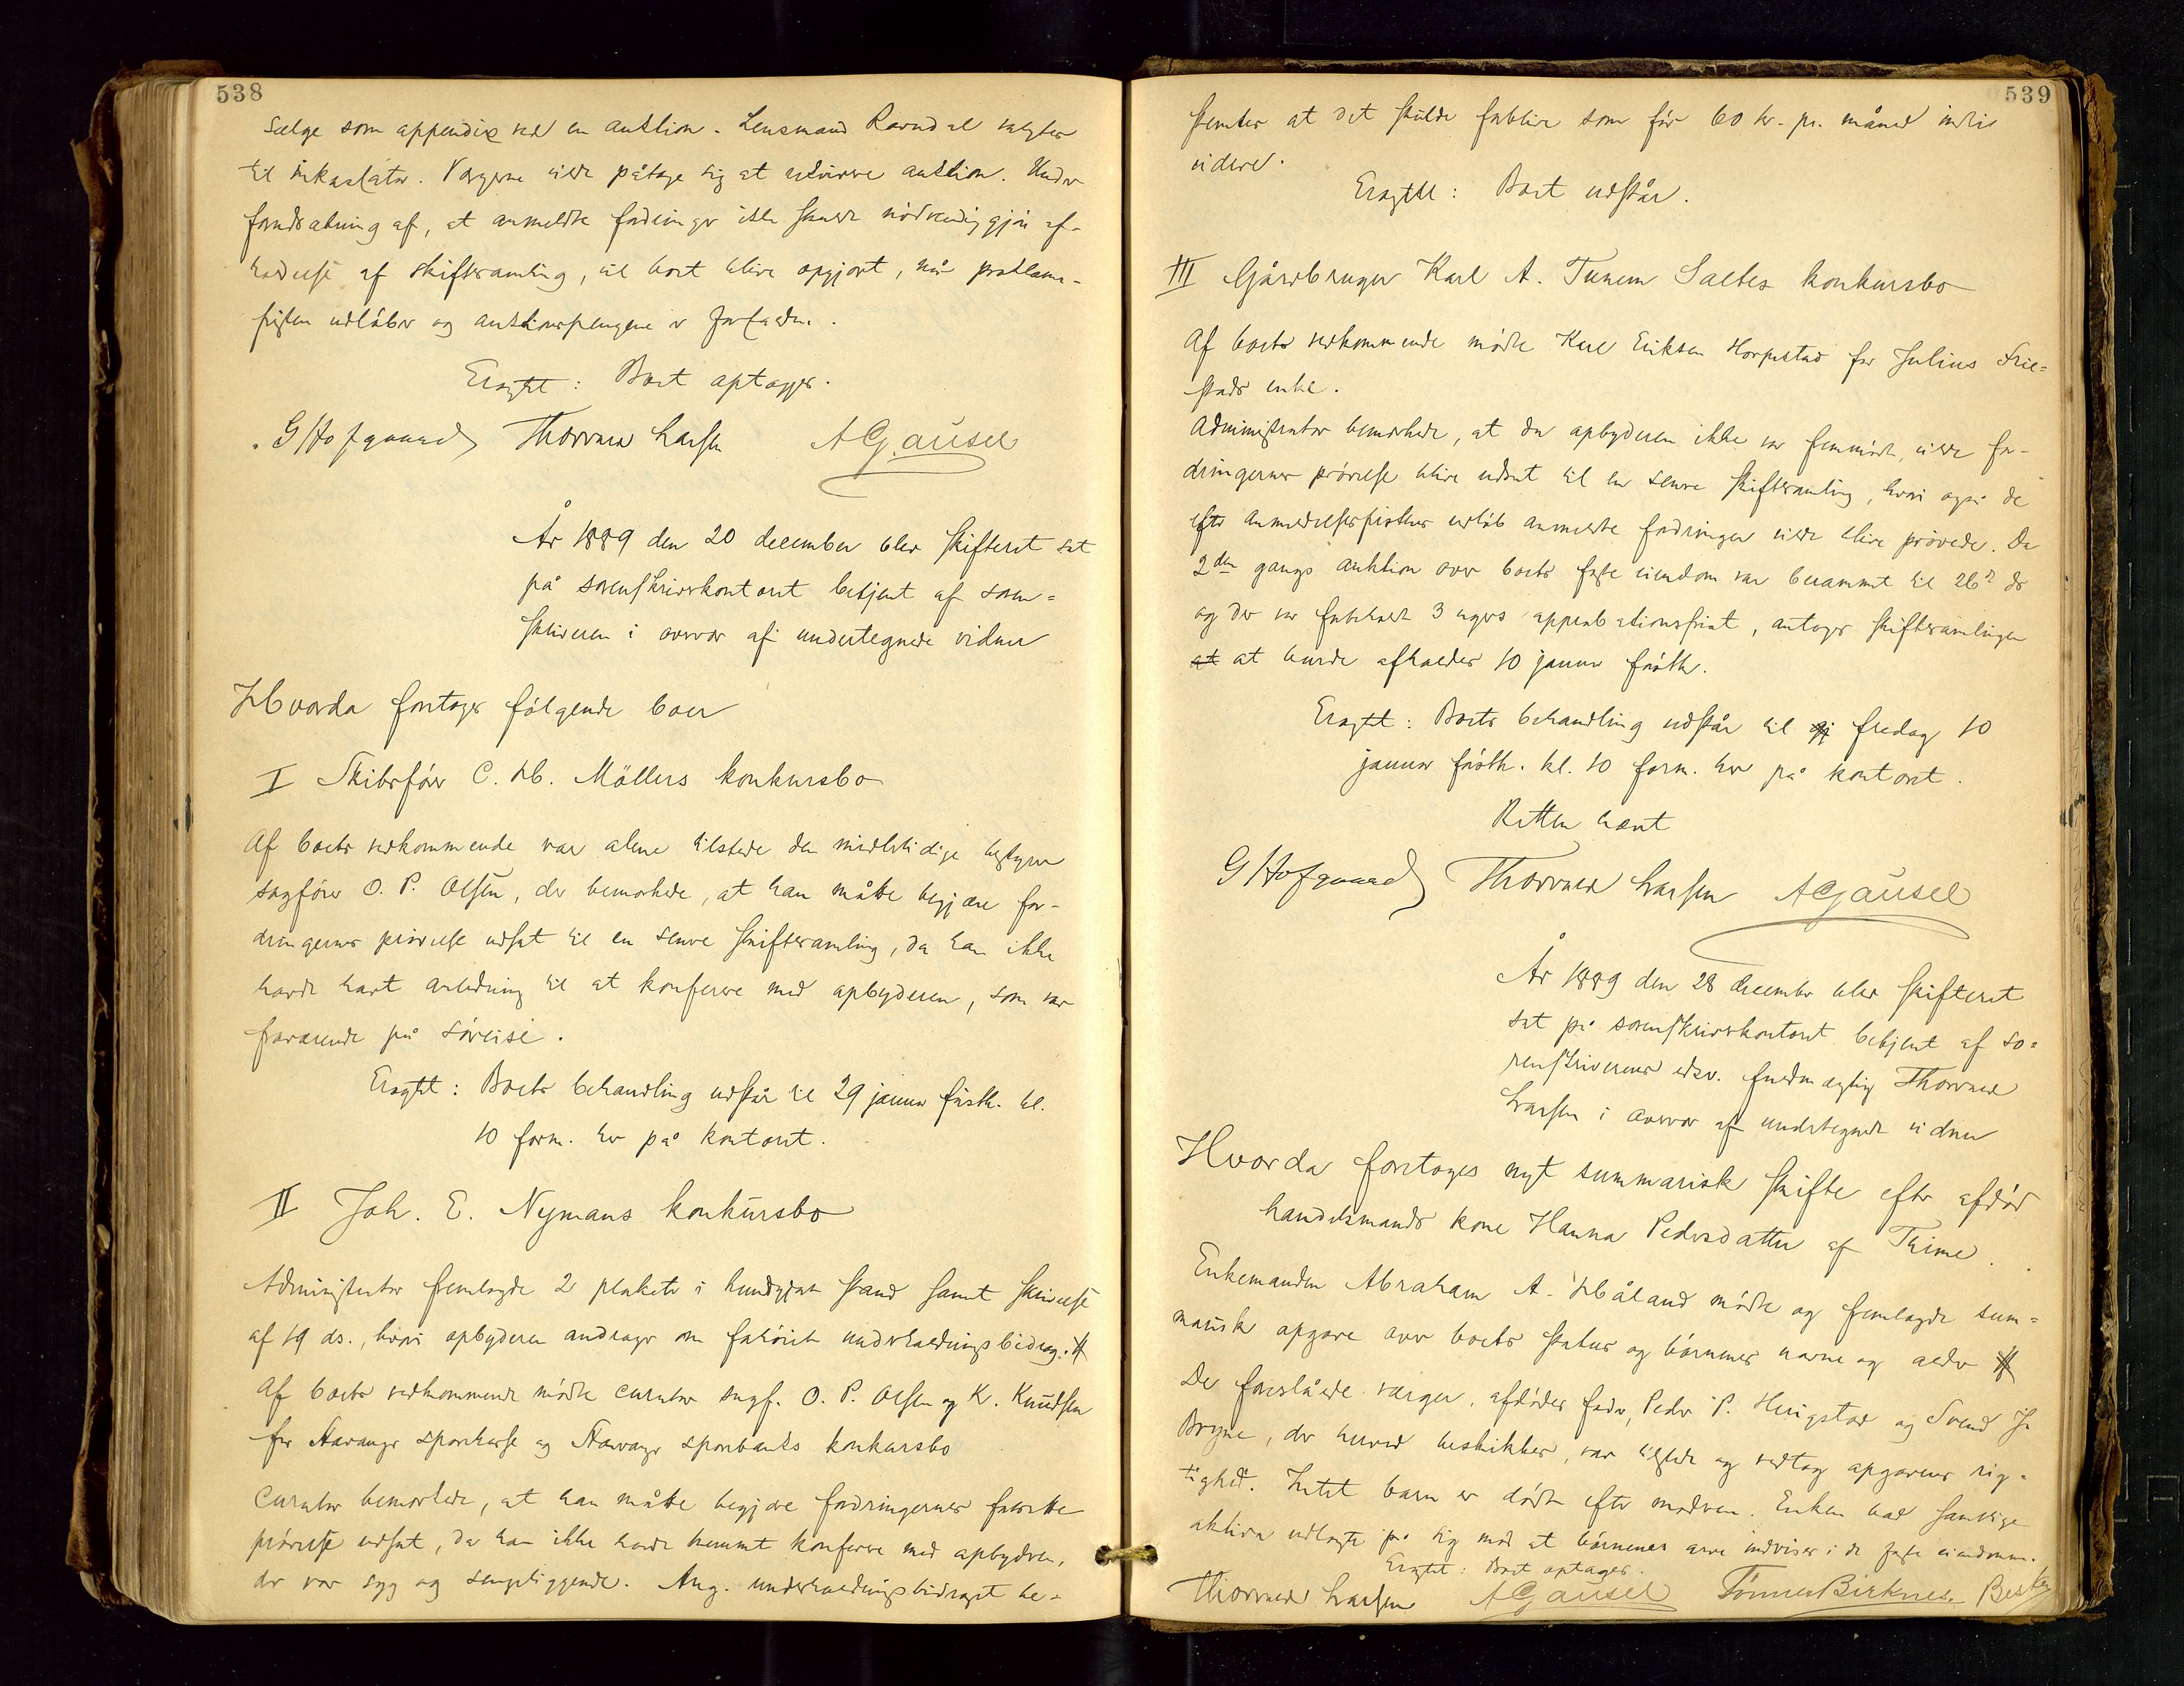 538
sælge som appendix ved en auktion. Lensmand Ravndal valgtes
til inkassator. Vargerne vilde påtage sig at rekvirere auktion. Under
forudsætning af, at anmeldte fordringer ikke skulde nødvendiggjøre af-
holdelse af skiftesamling, vil boet blive opgjort, når proklama-
fristen udløber og auktionspengene er forfaldne.
Eragtet: Boet optages.
G Hofgaard Thorvald Larsen A Gausel
År 1889 den 20 december blev skifteret sat
på sorenskriverkontoret betjent af soren=
skriveren i overvær af undertegnede vidner
Hvorda foretoges følgende boer
I Skibsfører C. H. Möllers konkursbo
Af boets vedkommende var alene tilstede den midlertidige bestyrer
sagfører O. P. Olsen, der bemærkede, at han måtte begjære for-
dringernes prøvelse udsat til en senere skiftesamling, da han ikke
havde havt anledning til at konferere med opbyderen, som var
fraværende på søreise.
Eragtet: Boets behandling udstår til 29 januar førstk. kl.
10 form. her på kontoret.
II Joh. E. Nymans konkursbo
Administrator fremlagde 2 plakater i kundgjort stand samt skrivelse
af 19 ds., hvori opbyderen andrager om forhøiet underholdningsbidrag. #
Af boets vedkommende mødte curator sagf. O. P. Olsen og K. Knudsen
for Stavanger sparekasse og Stavanger sparebanks konkursbo
Curator bemærkede, at han måtte begjære fordringernes fortsatte
prøvelse udsat, da han ikke havde kunnet konferere med opbyderen,
der var syg og sengeliggende. Ang. underholdningsbidraget be-
539
stemtes at det skulde forblive som før 60 kr. pr. måned indtil
videre.
Eragtet: Boet udstår.
III Gårdbruger Karl A. Tunem Saltes konkursbo
Af boets vedkommende mødte Karl Eriksen Horpestad for Julius Frie=
stads enke.
Administrator bemærkede, at da opbyderen ikke var fremmødt, vilde for-
dringernes prøvelse blive udsat til en senere skiftesamling, hvori også de
efter anmeldelsesfristens udløb anmeldte fordringer vilde blive prøvede. Da
2den gangs auktion over boets faste eiendom var berammet til 26de ds
og der var forbeholdt 3 ugers approbationsfrist, antoges skiftesamlingen
at at burde afholdes 10 januar førstk.
Eragtet: Boets behandling udstår til fredag 10
januar førstk. kl. 10 form. her på kontoret.
Retten hævet
G Hofgaard Thorvald Larsen A Gausel
År 1889 den 28 december blev skifteret
sat på sorenskriverkontoret betjent af so=
renskriverens edsv. fuldmægtig Thorvald
Larsen i overvær af undertegnede vidner
Hvorda foretoges nyt summarisk skifte efter afdød
handelsmands kone Hanna Pedersdatter af Thime.
Enkemanden Abraham A. Håland mødte og fremlagde sum=
marisk opgave over boets status og børnenes navne og alder #
De foreslåede værger, afdødes fader, Peder P. Herigstad og Svend
Bryne, der herved beskikkes, var tilstede og vedtog opgavens rig=
tighed. Intet barn er dødt efter moderen. Enken bad samtlige
aktiva udlagte på sig mod at børnenes arv indvises i de faste eiendomme.
Eragtet: Boet optages.
Thorvald Larsen A Gausel Tønnes Birknes. Besk